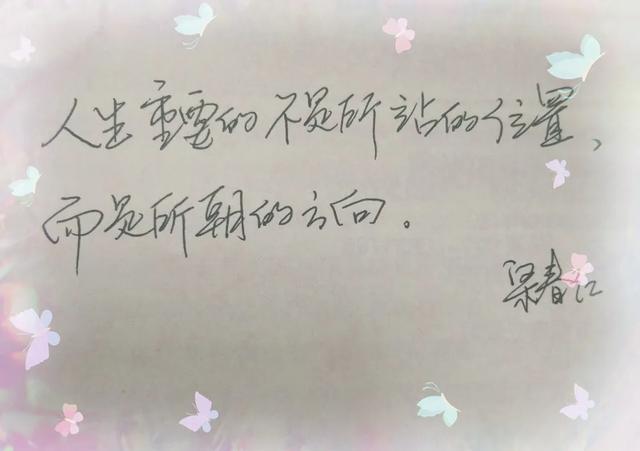 人生重要的不是所站的位置、
而是所朝的方向。
梁春江